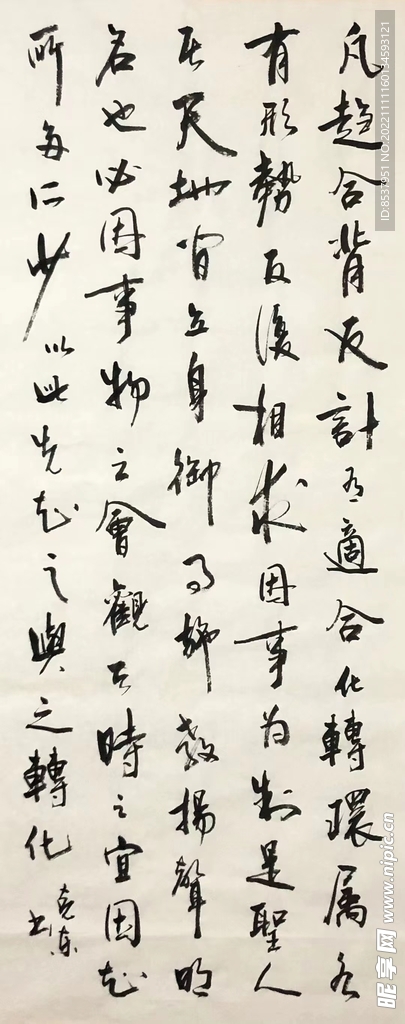 凡趨合背反計有適合化轉環屬各
有形勢反復相求因事為制是聖人
居天地間立身御世施教揚聲明
名也必因事物之會觀天時之宜因知
所多所少以此先知之與之轉化
克東書
ID:8537951 NO:20221111160134593121
昵享网 www.nipic.cn
www.nipic.com